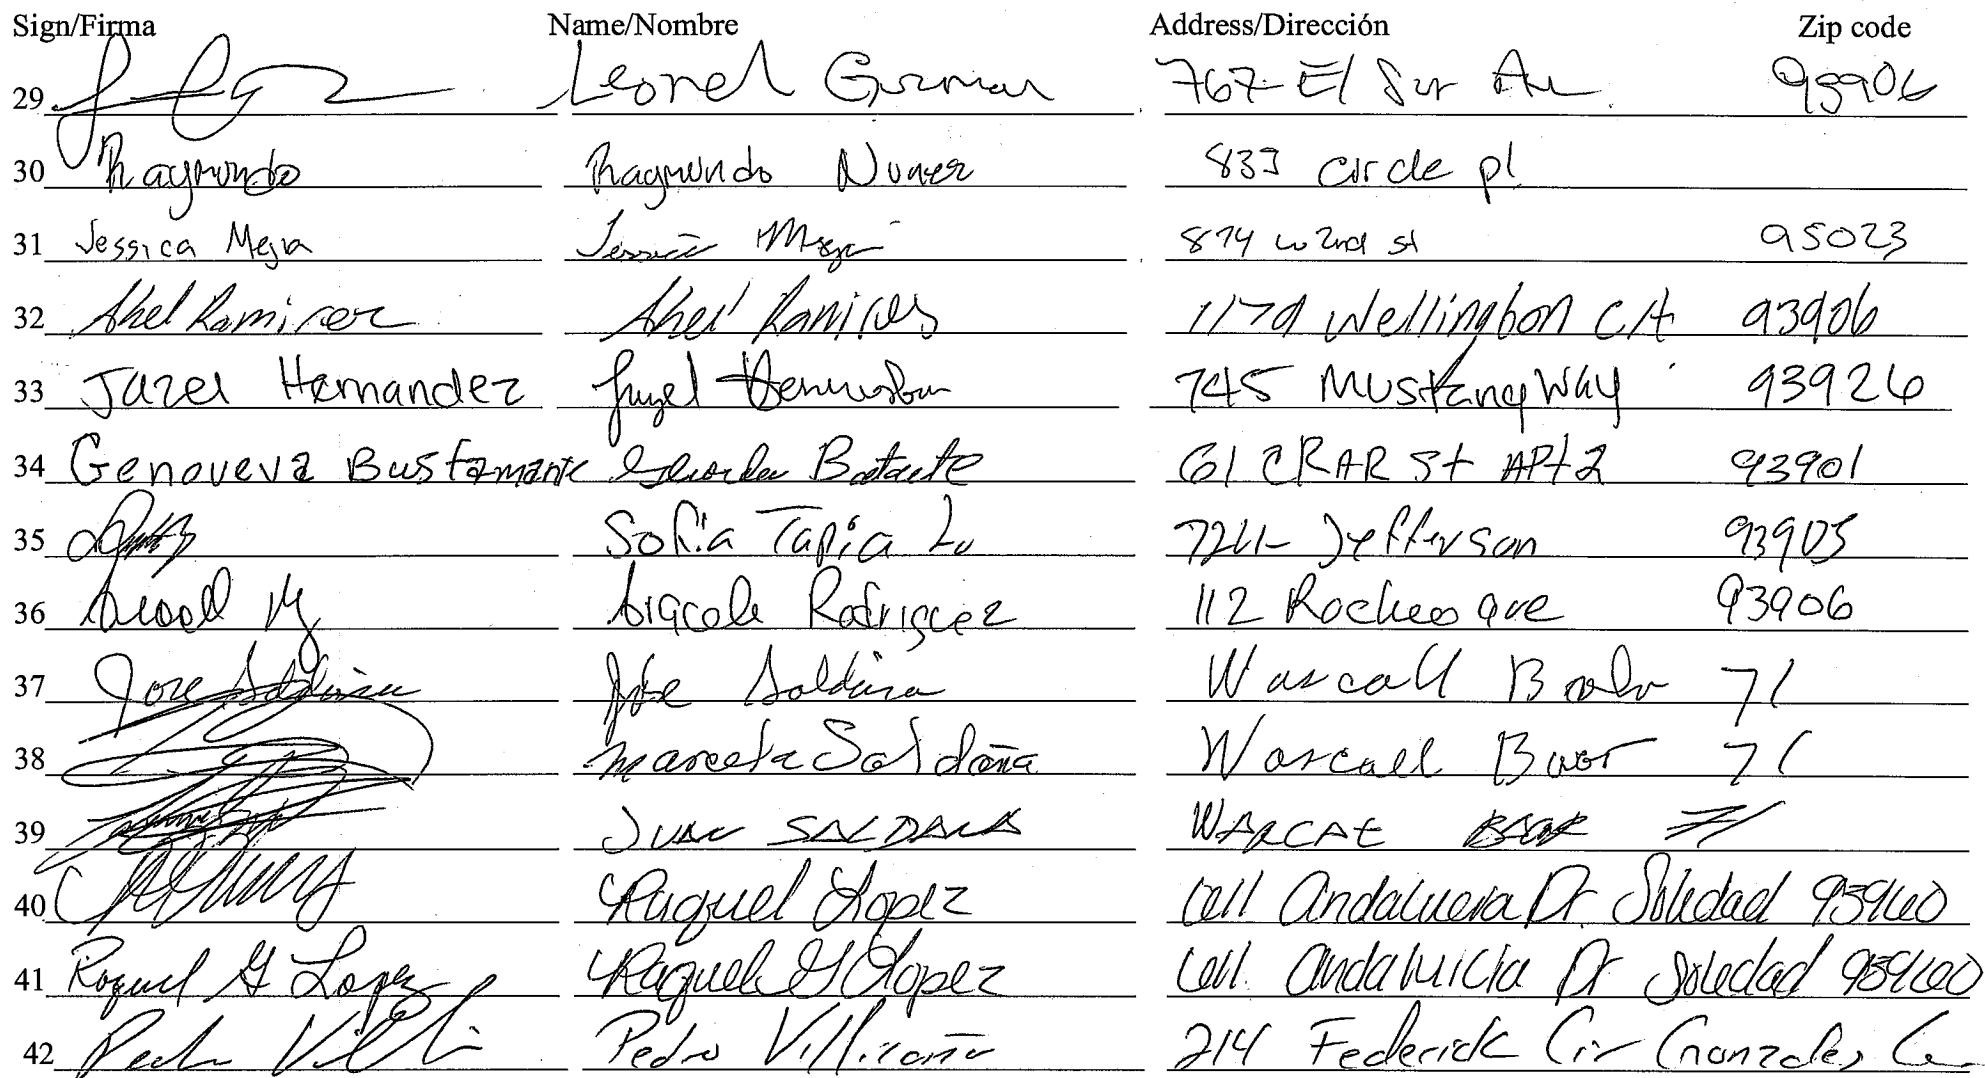 Sign/Firma Name/Nombre Address/Dirección Zip code
29 Leonel Guzman 767 El Sur Av 93906
30 Raymundo Raymundo Nunez 833 circle pl
31 Jessica Mejia Jessica Mejia 874 w 2nd st 95023
32 Abel Ramirez Abel Ramires 1179 Wellington C/t 93906
33 Jazel Hernandez Jazel 745 Mustang Way 93926
34 Genoveva Bustamante 61 CRAR St APt 2 93901
35 Sofia Tapia Lu Jefferson 93905
36 Rodriguez 112 ave 93906
37 Jose Saldaña Jose Saldaña 71
38 Marcela Saldaña 71
39 JUAN SALDAÑA 71
40 Raquel Lopez Dr Soledad 93960
41 Raquel G Lopez Raquel G Lopez Andalucia Dr Soledad 93960
42 Pedro Pedro Villicaña 214 Federick Cir Gonzales Ca